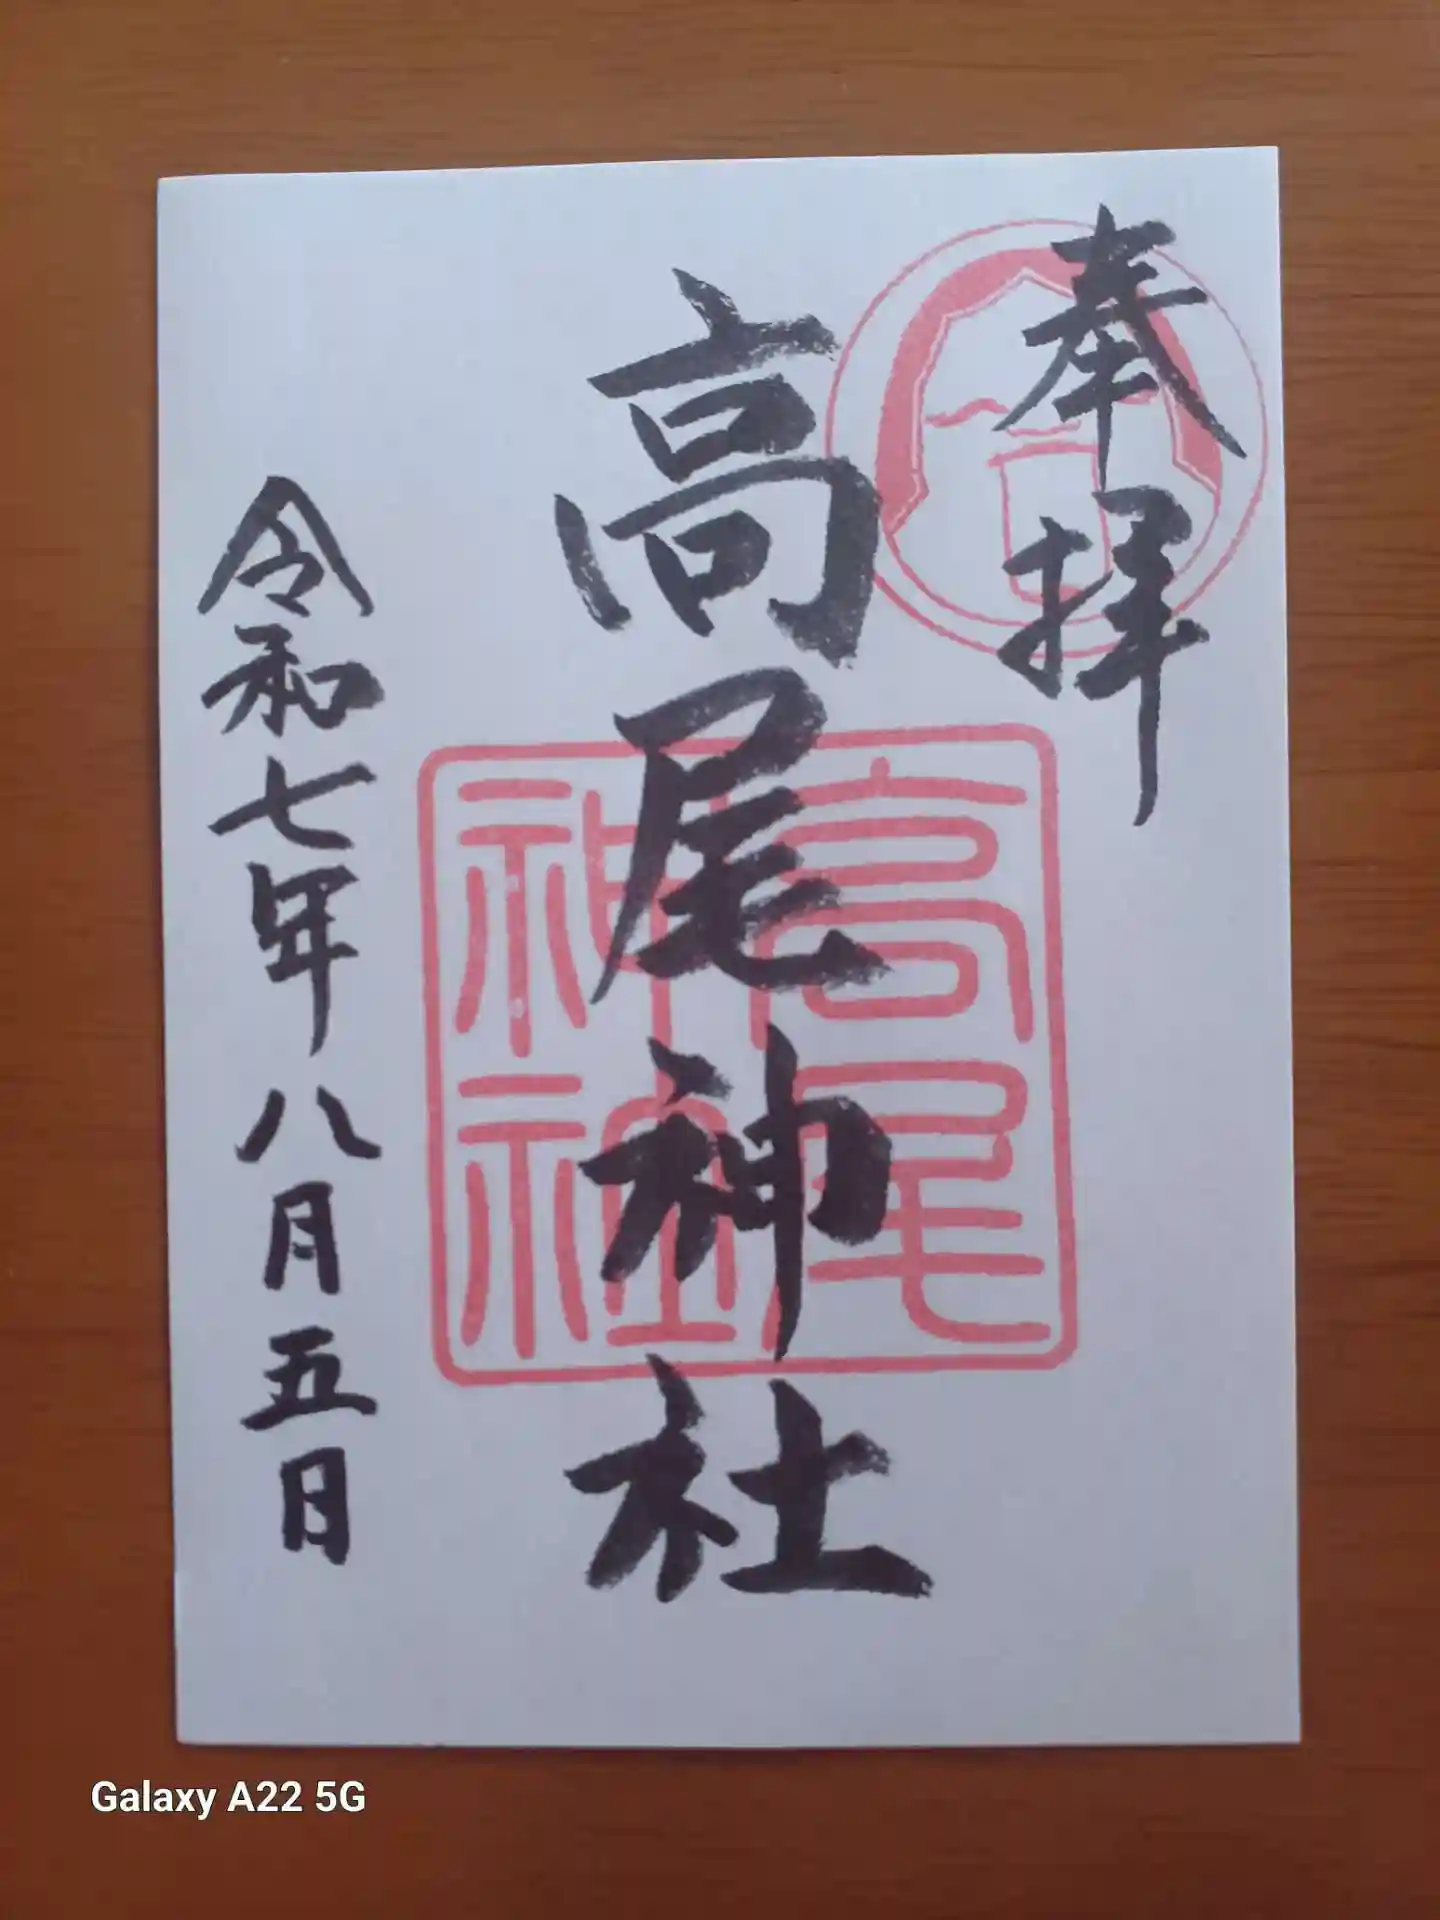 奉拝
高尾神社
高尾
神社
令和七年八月五日
Galaxy A22 5G